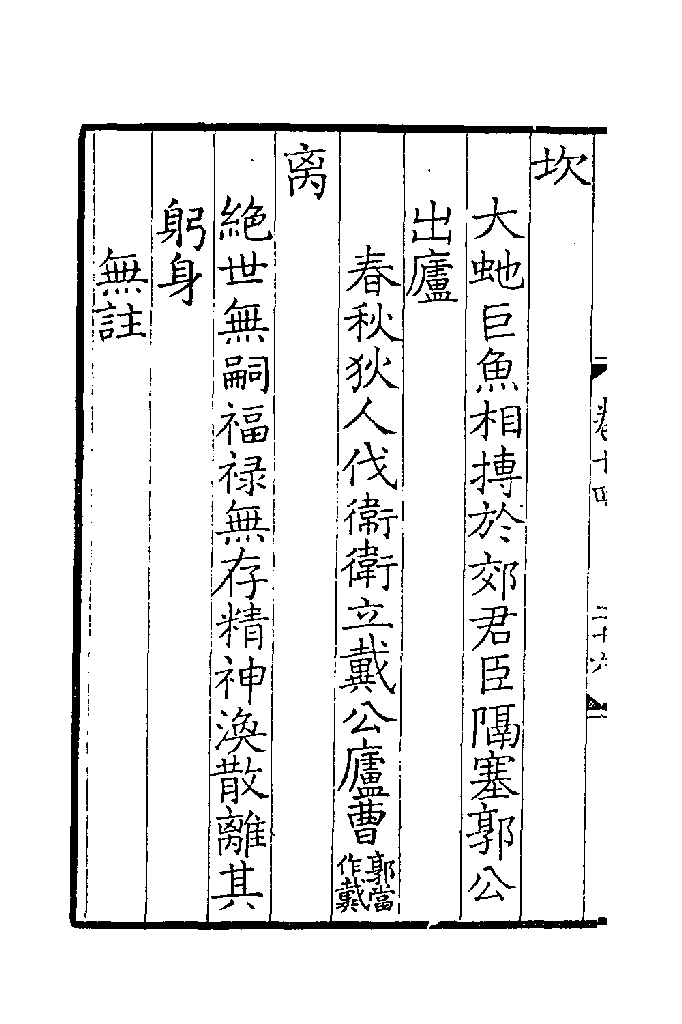 坎
大虵巨魚相摶於郊君臣隔塞郭公
出廬
春秋狄人伐衛衛立戴公廬曹郭當作戴
离
絶世無嗣福禄無存精神渙散離其
躬身
無註
卷十四
二十六